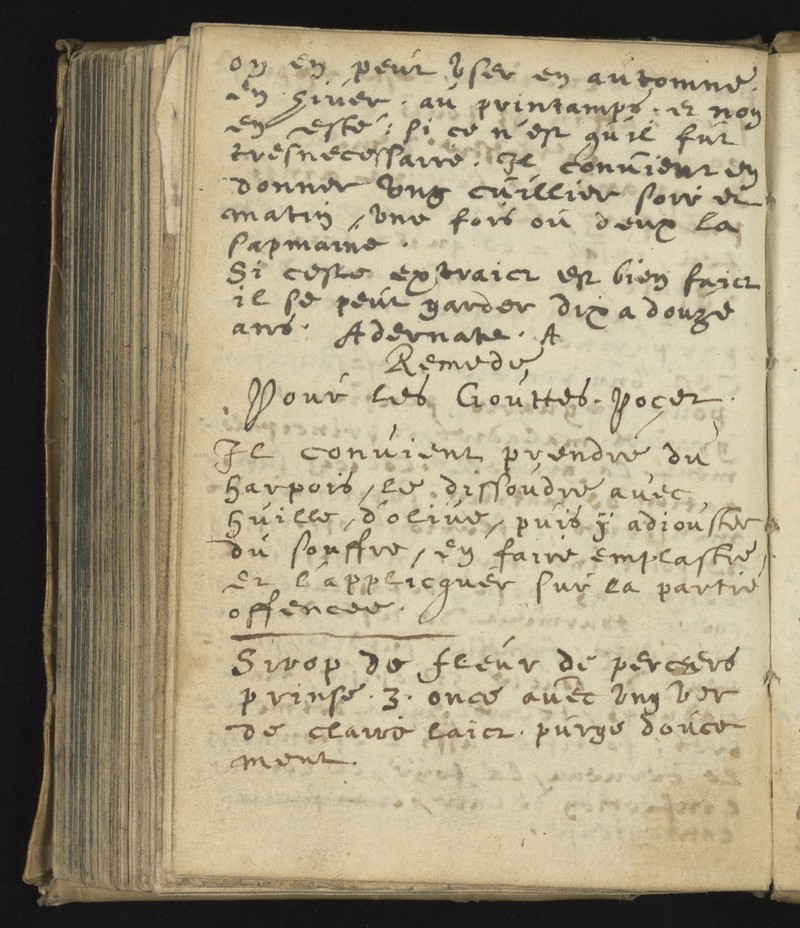 on en peut vser en automne.
en hiver. au printamps. et non
en esté: si ce n'est qu'il fut
tresnecessaire. Il convient en
donner vng cuillier soir et
matin, vne fois ou deux la
sapmaine.
Si ceste extraict est bien faict
il se peut garder dix a douze
ans. Adernate. A
Remede
Pour les Gouttes. Poçet.
Il convient prendre du
harpois, le dissoudre avec
huille, d'olive, puis ÿ adiouster
du souffre, en faire emplastre,
et l'applicquer sur la partie
offencee.
Sirop de fleur de percers
prinse. 3. once avec vng ver
de claire laict. purge douce
ment.